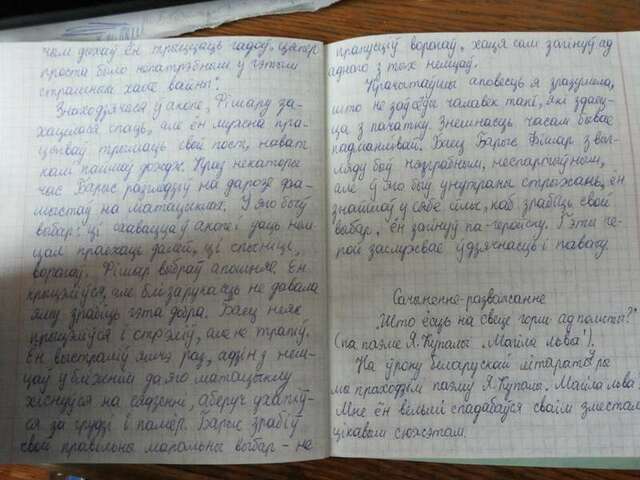 чым дыхаў ён трыццаць гадоў, цяпер
проста было непатрэбным у гэтым
страшным хаце вайны".
Знаходзячася у акопе, Фішару за-
хацелася спаць, але ён мужна пра-
цягваў трымаць свой пост, нават
калі пайшоў дождж. Праз некаторы
час Барыс разгледзеў на дарозе фа-
шыстаў на матацыклах. У яго быў
выбар: ці схавацца ў акопе і даць нем-
цам праехаць далей, ці спыніць
ворагаў. Фішар выбраў апошняе. Ён
прыцэліўся, але блізарукасць не давала
яму зрабіць гэта добра. Баец неяк
прыцэліўся і стрэліў, але не трапіў.
Ён выстраліў яшчэ раз, адзін з нем-
цаў у бліжнім да яго матацыкле
хіснуўся на сядзенні, аберуч ухапіў-
ся за грудзі і памёр. Барыс зрабіў
свой правільны маральны выбар - не
прапусціў ворагаў, хаця сам загінуў ад
аднаго з тых немцаў.
Прачытаўшы аповесць я зразумела,
што не заўсёды чалавек такі, які здаец-
ца з пачатку. Знешнасць часам бывае
падманлівай. Баец Барыс Фішар з выг-
ляду быў нязграбным, неспартыўным,
але ў яго быў унутраны стрыжань, ён
знайшоў у сябе сілы, каб зрабіць свой
выбар, і ён загінуў па-геройску. Гэты ге-
рой заслужвае ўдзячнасць і павагу.
Сачыненне-разважанне
"Што ёсць на свеце горш ад помсты?"
(па паэме Я. Купалы "Магіла льва").
На ўроку беларускай літаратуры
мы праходзілі паэму Я. Купалы "Магіла льва".
Мне ён вельмі спадабаўся сваім зместам
цікавым сюжэтам.